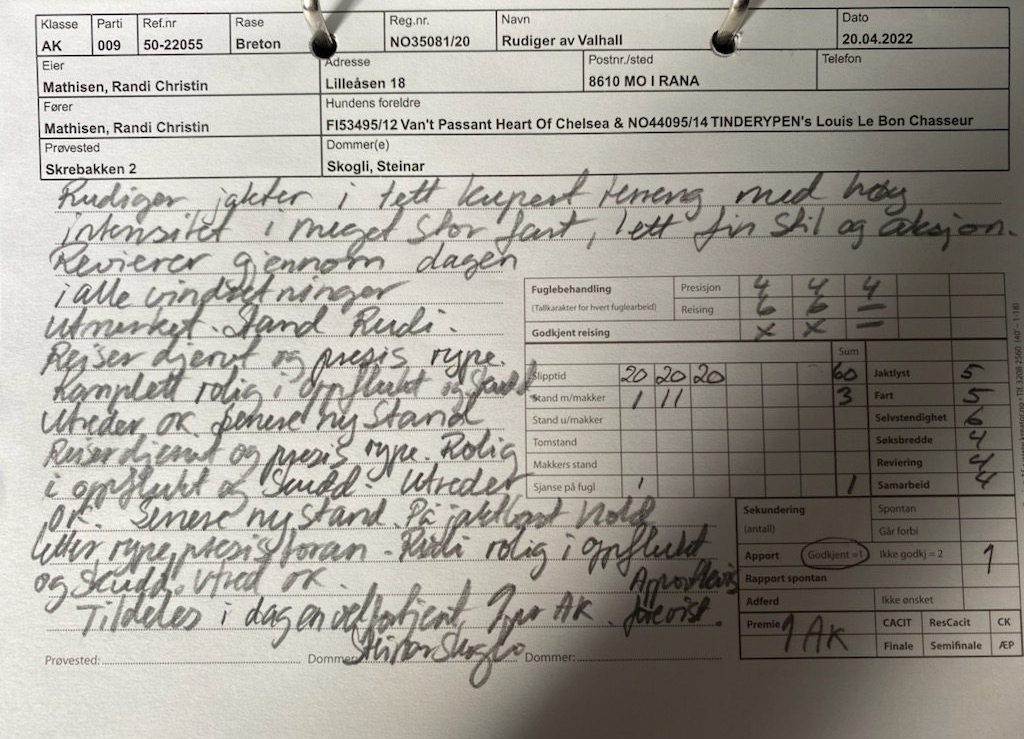 Klasse Parti Ref.nr Rase Reg.nr. Navn Dato
AK 009 50-22055 Breton NO35081/20 Rudiger av Valhall 20.04.2022
Eier Adresse Postnr./sted Telefon
Mathisen, Randi Christin Lilleåsen 18 8610 MO I RANA
Fører Hundens foreldre
Mathisen, Randi Christin FI53495/12 Van't Passant Heart Of Chelsea & NO44095/14 TINDERYPEN's Louis Le Bon Chasseur
Prøvested Dommer(e)
Skrebakken 2 Skogli, Steinar
Rudiger jakter i tett kupert terreng med høy
intensitet i meget stor fart, lett fin stil og aksjon.
Revierer gjennom dagen
i alle vindretninger
utmerket. Stand Rudi.
Reiser djervt og presis rype.
Komplett rolig i oppflukt og skudd
Utreder ok. Senere ny stand
Reiser djervt og presis rype. Rolig
i oppflukt og skudd. Utreder
ok. Senere ny stand. På
letter rype, presis foran. Rudi rolig i oppflukt
og skudd. Utred ok. Apport
Tildeles i dag en velfortjent 1pr AK.
Fuglebehandling Presisjon 4 4 4
(Tallkarakter for hvert fuglearbeid) Reising 6 6 –
Godkjent reising x x –
Sum
Slipptid 20 20 20 60 Jaktlyst 5
Stand m/makker 1 11 3 Fart 5
Stand u/makker Selvstendighet 6
Tomstand Søksbredde 4
Makkers stand Reviering 4
Sjanse på fugl 1 1 Samarbeid 4
Sekundering Spontan
(antall) Går forbi
Apport Godkjent =1 Ikke godkj = 2 1
Rapport spontan
Adferd Ikke ønsket
Premie 1 AK CACIT ResCacit CK
Finale Semifinale ÆP
Prøvested: Dommer: Steinar Skogli Dommer: